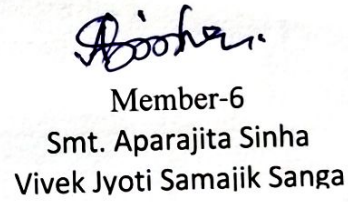 Member-6
Smt. Aparajita Sinha
Vivek Jyoti Samajik Sanga